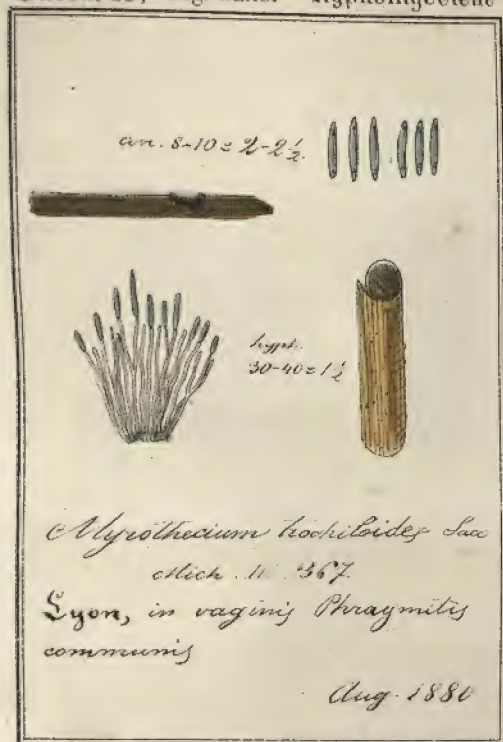 con. 8-10 = 2-2½.
hyph.
30-40 = 1½
Myrothecium trochiloides Sacc
Mich. II. 367.
Lyon, in vaginis Phragmitis
communis
Aug. 1880